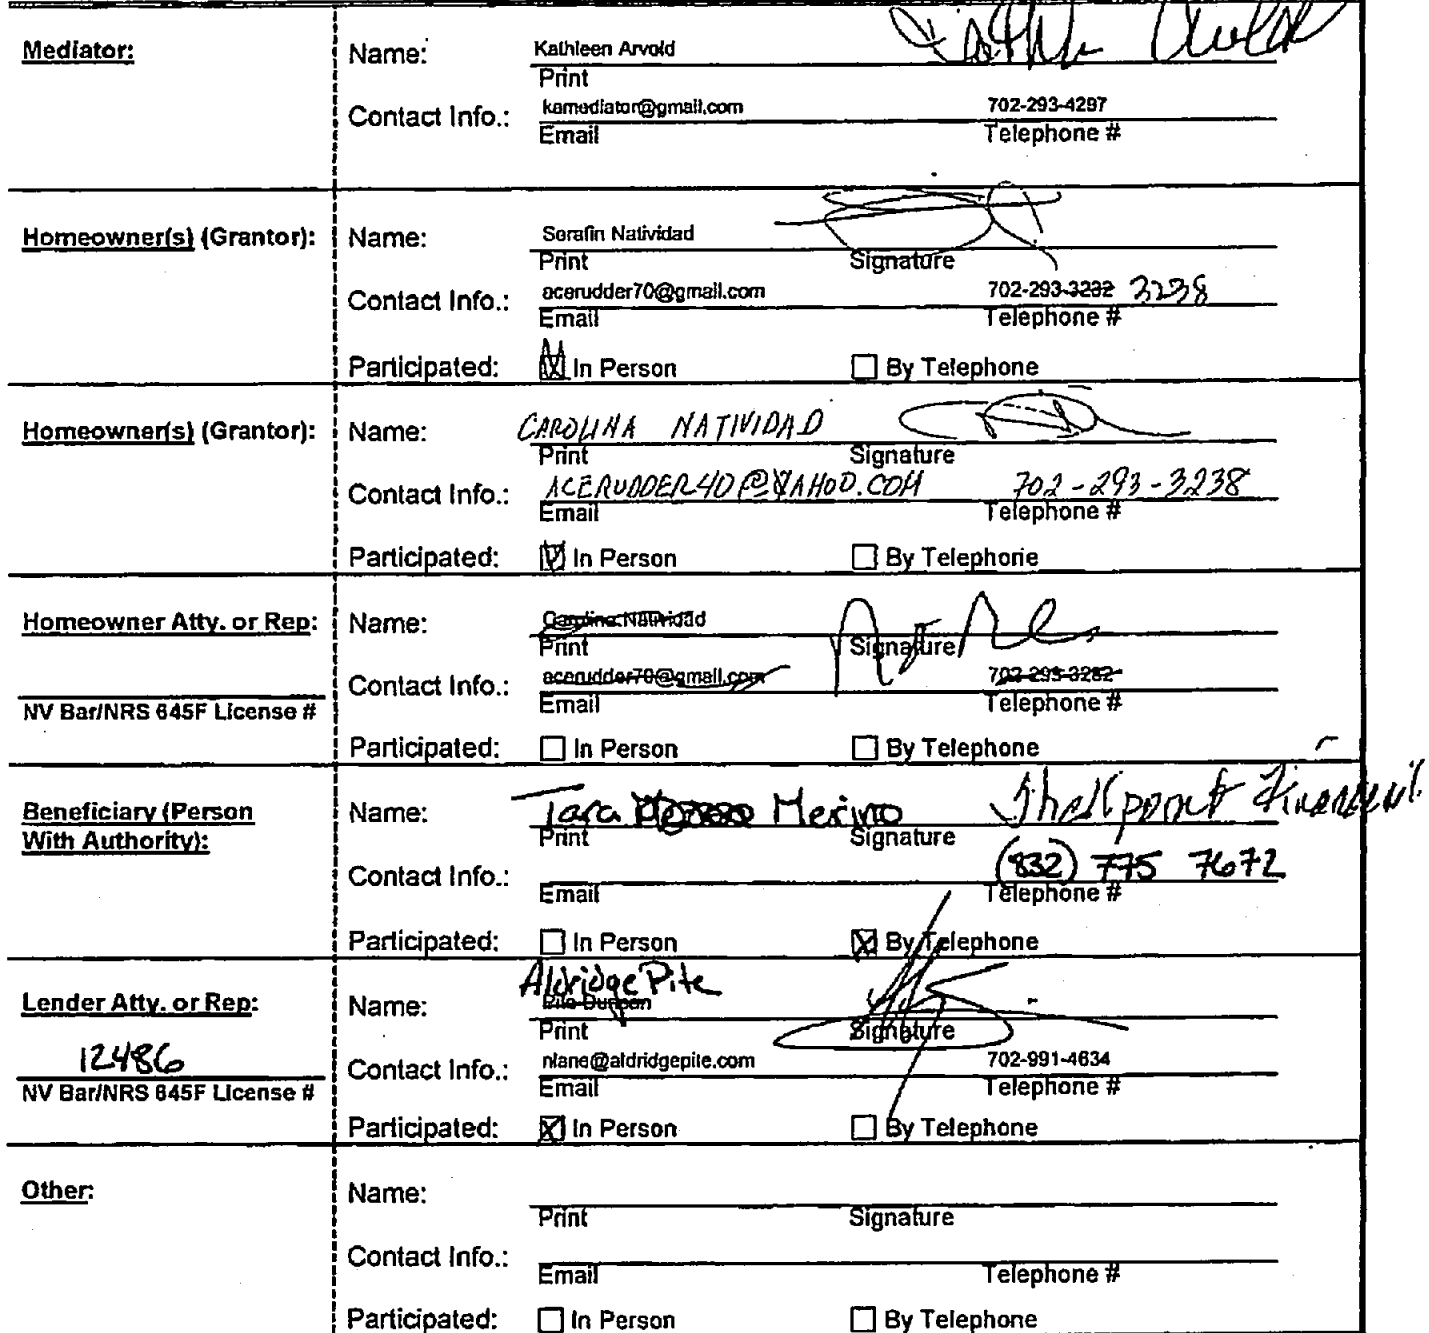 Mediator: Name: Kathleen Arvold
Print
Contact Info.: kamediator@gmail.com 702-293-4297
Email Telephone #
Homeowner(s) (Grantor): Name: Serafin Natividad
Print Signature
Contact Info.: acerudder70@gmail.com 702-293-3232 3238
Email Telephone #
Participated: In Person By Telephone
Homeowner(s) (Grantor): Name: CAROLINA NATIVIDAD
Print Signature
Contact Info.: ACERUDDER40@YAHOO.COM 702-293-3238
Email Telephone #
Participated: In Person By Telephone
Homeowner Atty. or Rep: Name: Carolina Natividad
Print Signature
Contact Info.: acerudder70@gmail.com 702-293-3282
NV Bar/NRS 645F License # Email Telephone #
Participated: In Person By Telephone
Beneficiary (Person With Authority): Name: Tara Merino Shellpoint Financial
Print Signature
Contact Info.: (832) 775 7672
Email Telephone #
Participated: In Person By Telephone
Aldridge Pite
Lender Atty. or Rep: Name: Pite Duncan
Print Signature
12486 Contact Info.: nlane@aldridgepite.com 702-991-4634
NV Bar/NRS 645F License # Email Telephone #
Participated: In Person By Telephone
Other: Name:
Print Signature
Contact Info.:
Email Telephone #
Participated: In Person By Telephone